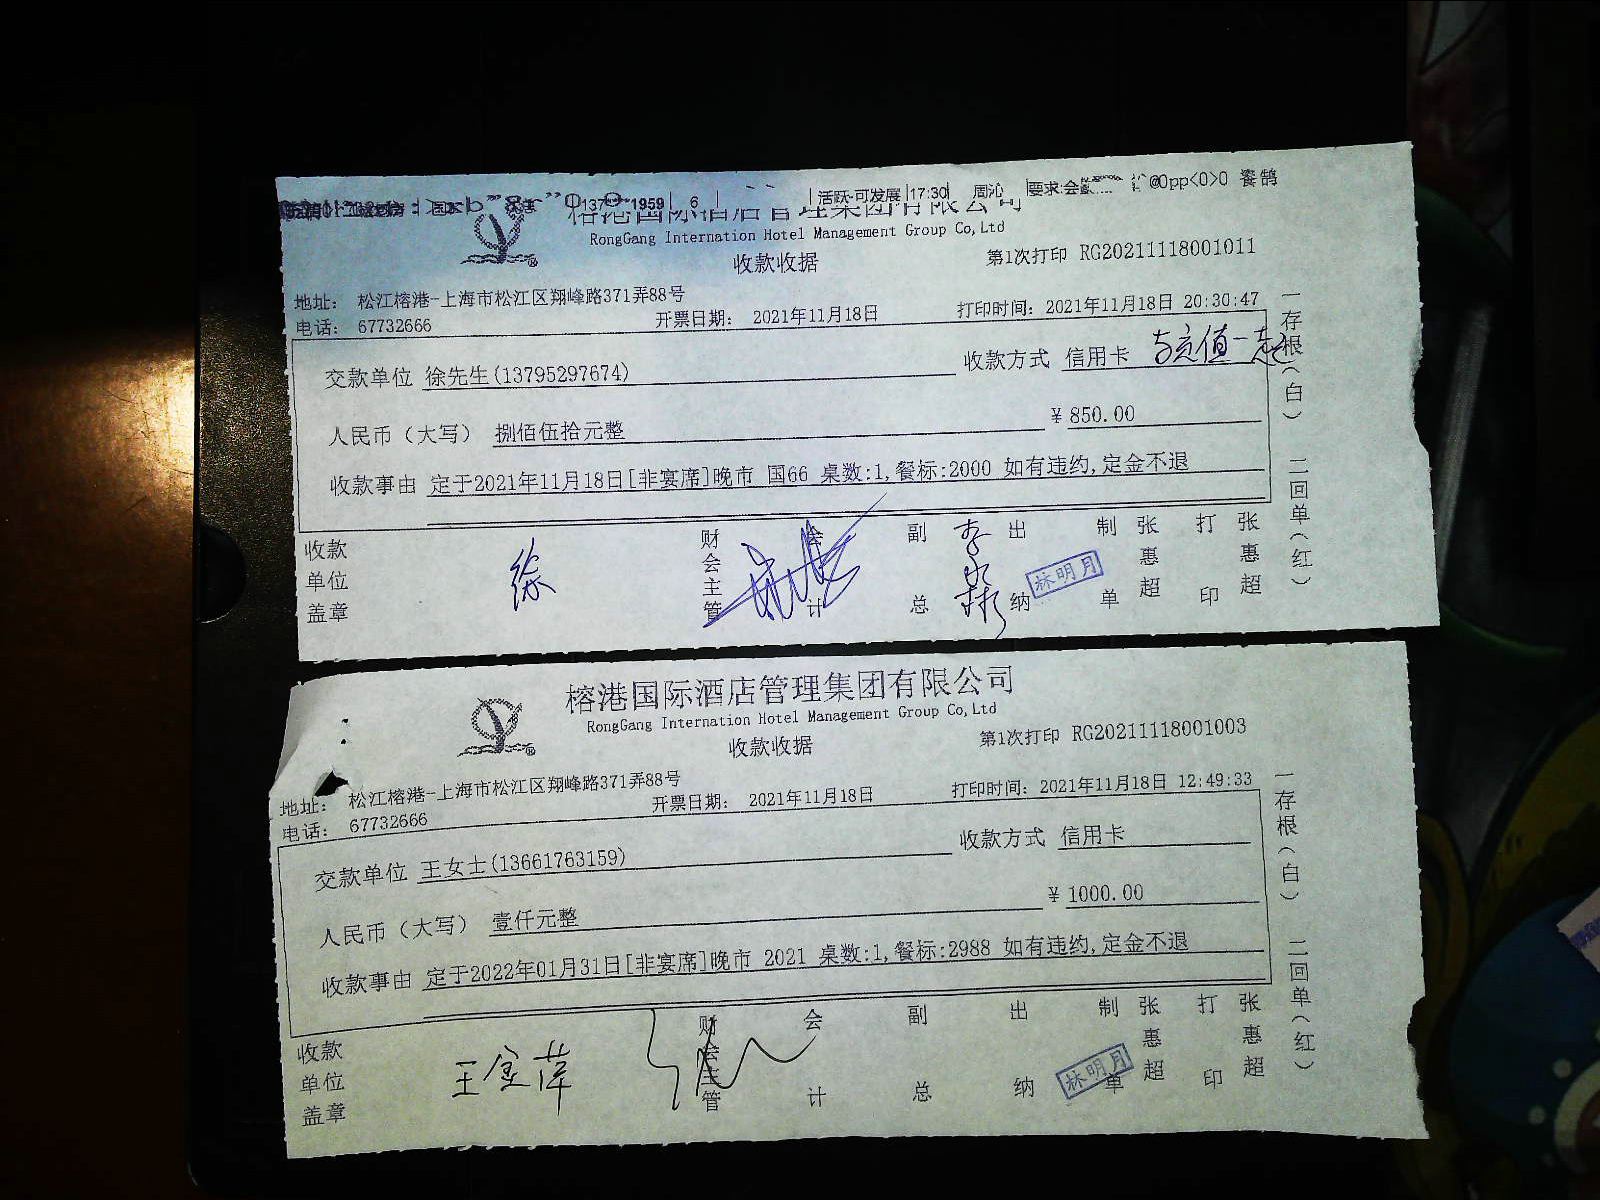 1959 6 活跃·可发展 17:30 周沁 要求:会 @0pp<0>0 饕鹄
榕港国际酒店管理集团有限公司
RongGang Internation Hotel Management Group Co,Ltd
收款收据
第1次打印 RG20211118001011
地址: 松江榕港-上海市松江区翔峰路371弄88号
电话: 67732666 开票日期: 2021年11月18日 打印时间: 2021年11月18日 20:30:47
交款单位 徐先生(13795297674) 收款方式 信用卡 与充值一起
人民币(大写) 捌佰伍拾元整 ¥850.00
收款事由 定于2021年11月18日[非宴席]晚市 国66 桌数:1,餐标:2000 如有违约,定金不退
一存根(白) 二回单(红)
收款单位盖章 徐 财会主管 会计 副总 李 出纳 林明月 制单 张惠超 打印 张惠超
榕港国际酒店管理集团有限公司
RongGang Internation Hotel Management Group Co,Ltd
收款收据
第1次打印 RG20211118001003
地址: 松江榕港-上海市松江区翔峰路371弄88号
电话: 67732666 开票日期: 2021年11月18日 打印时间: 2021年11月18日 12:49:33
交款单位 王女士(13661763159) 收款方式 信用卡
人民币(大写) 壹仟元整 ¥1000.00
收款事由 定于2022年01月31日[非宴席]晚市 2021 桌数:1,餐标:2988 如有违约,定金不退
一存根(白) 二回单(红)
收款单位盖章 王金萍 财会主管 会计 副总 出纳 林明月 制单 张惠超 打印 张惠超